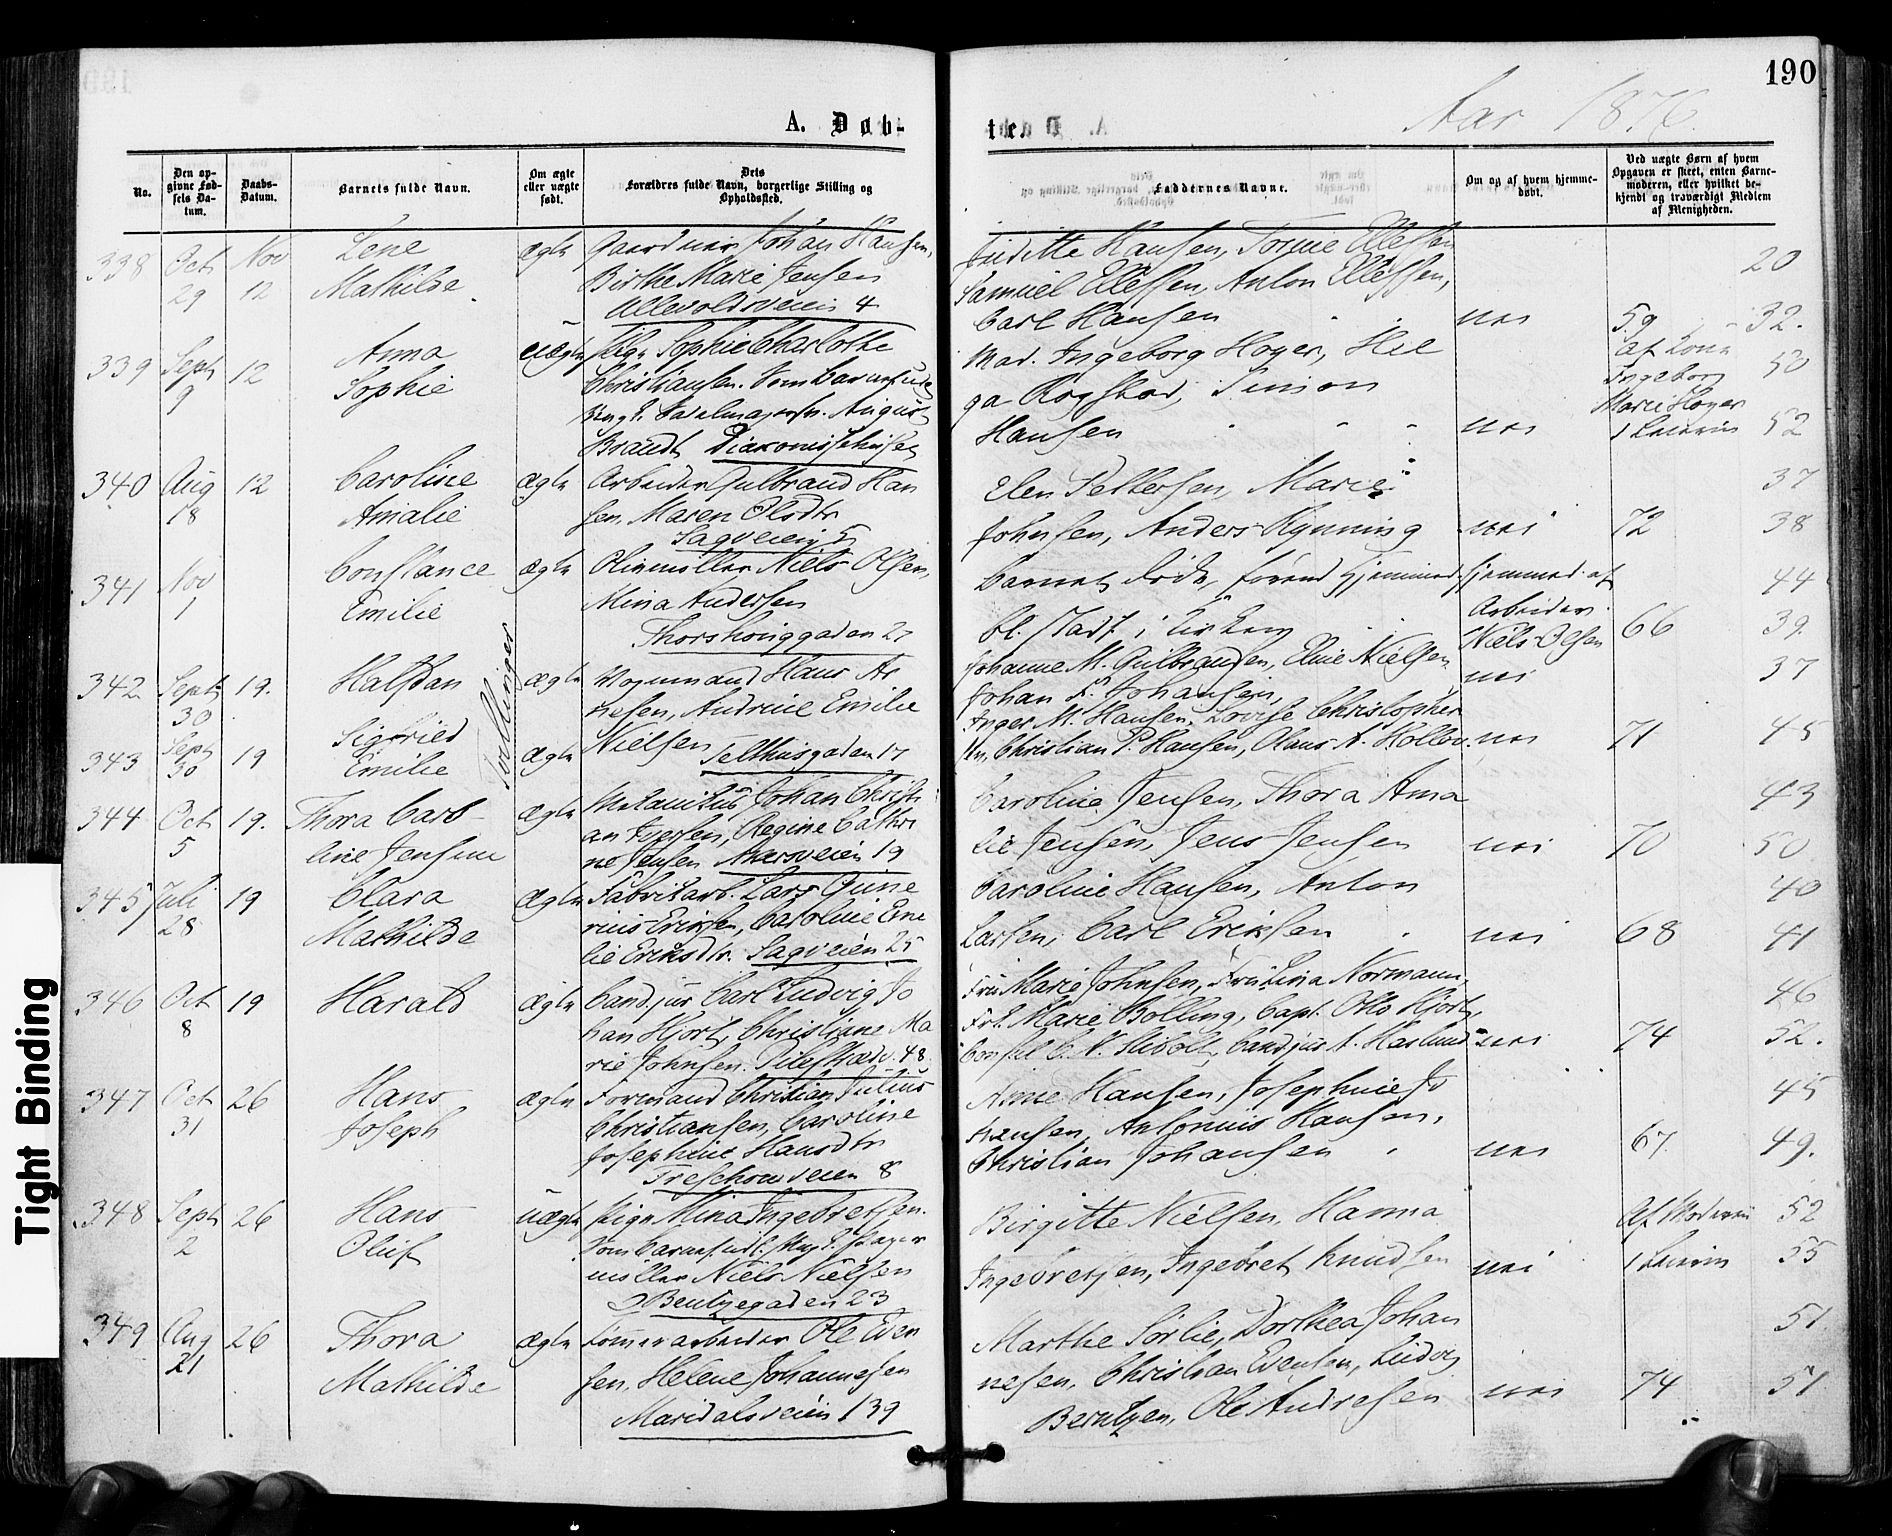 190
Aar 1876.
A. Døb-
te.
No.
Den op-
givne Fød-
sels Da-
tum.
Daabs-
Datum.
Barnets fulde Navn.
Om ægte
eller uægte
født.
Dets
Forældres fulde Navn, borgerlige Stilling og
Opholdssted.
Faddernes Navne.
Om og af hvem hjemme-
døbt.
Ved uægte Børn af hvem
Opgaven er skeet, enten Barne-
moderen, eller hvilket be-
kjendt og troværdigt Medlem
af Menigheden.
338 Oct 29 Nov 12 Lene Mathilde ægte
Gaardmin Johan Hansen,
Birthe Marie Jensen
Ullevoldsveien 4
Juditte Hansen,
Samuel Ellefsen, Anton Ellefsen,
Carl Hansen nei 59 20 32.
339 Sept 9 12 Anna Sophie uægte
Pige Sophie Charlotte
Christiansen. Som Barnefader
Ungk. Sadelmagersv. August
Brandt Diakonissehuset
Mad. Ingeborg Hoyer, Hel
ga Rogstad, Simon
Hansen nei
af Kone
Ingeborg
Marie Hoyer
50 52
340 Aug 18 12 Caroline Amalie ægte
Arbeider Gulbrand Han
sen, Maren Olsdtr
Sagveien 5
Elen Pettersen, Marie
Johnsen, Anders Rynning nei 72 37 38
341 Nov 1 Constance Emilie ægte
Oliemöller Niels Olsen,
Mina Andersen
Thorshouggaden 27
Barnet døde, førend Hjemmed.
bl. stadf. i Kirken
Hjemmed. af
Arbeider
Niels Olsen
66 44 39.
342 Sept 30 19. Halfdan ægte
Tvillinger
Vognmand Hans Ar
nesen, Andrine Emilie
Nielsen Telthusgaden 17
Johanne M. Gulbrandsen, Eline Nielsen
Johan F. Johansen, nei 37
343 Sept 30 19 Sigfried Emilie ægte
Inger M. Hansen, Lovise Christopher
sen, Christian P. Hansen, Olaus A. nei 71 45
344 Oct 5 19. Thora Caro-
line Jensine ægte
Mekanikus Johan Christi
an Iversen, Regine Cathri
ne Jensen Akersveien 19
Caroline Jensen, Thora Ama
lie Jensen, Jens Jensen nei 70 43 50
345 Juli 28 19 Clara Mathilde ægte
Fabrikarb. Lars Gune
rius Eriksen, Caroline Eme
lie Eriksdtr. Sagveien 25
Caroline Hansen, Anton
Larsen, Carl Eriksen nei 68 40 41
346 Oct 8 19 Harald ægte
Cand. jur Carl Ludvig Jo
han Hjort, Christiane Ma
rie Johnsen. Pilestræde 48.
Fru Marie Johnsen, Fru Lina Normann,
Frk. Marie Bolling, Capt. Otto Hjort,
Consul C. A. Stibolt, Cand jur A. Haslund nei 74 46 52.
347 Oct 31 26 Hans Joseph ægte
Formand Christian Julius
Christiansen, Caroline
Josephine Hansdtr
Treschowsveien 8
Anne Hansen, Josephine Jo
hansen, Antonius Hansen,
Christian Johansen nei 67. 45 49.
348 Sept 2 26 Hans Oluf uægte
Pige Mina Ingebretsen.
Som Barnefad. Ungk. Papir
möller Niels Nielsen
Bentzegaden 23
Birgitte Nielsen, Hanna
Ingebretsen, Ingebret Knudsen nei
Af Moderen
52 55
349 Aug 21 26 Thora Mathilde ægte
Tømmerarbeider Ole Even
sen, Helene Johannesen
Maridalsveien 139
Marthe Sørlie, Dorthea Johan
nesen, Christian Evensen, Ludvig
Berntzen, Ole Andresen nei 74 51. 51
Tight Binding